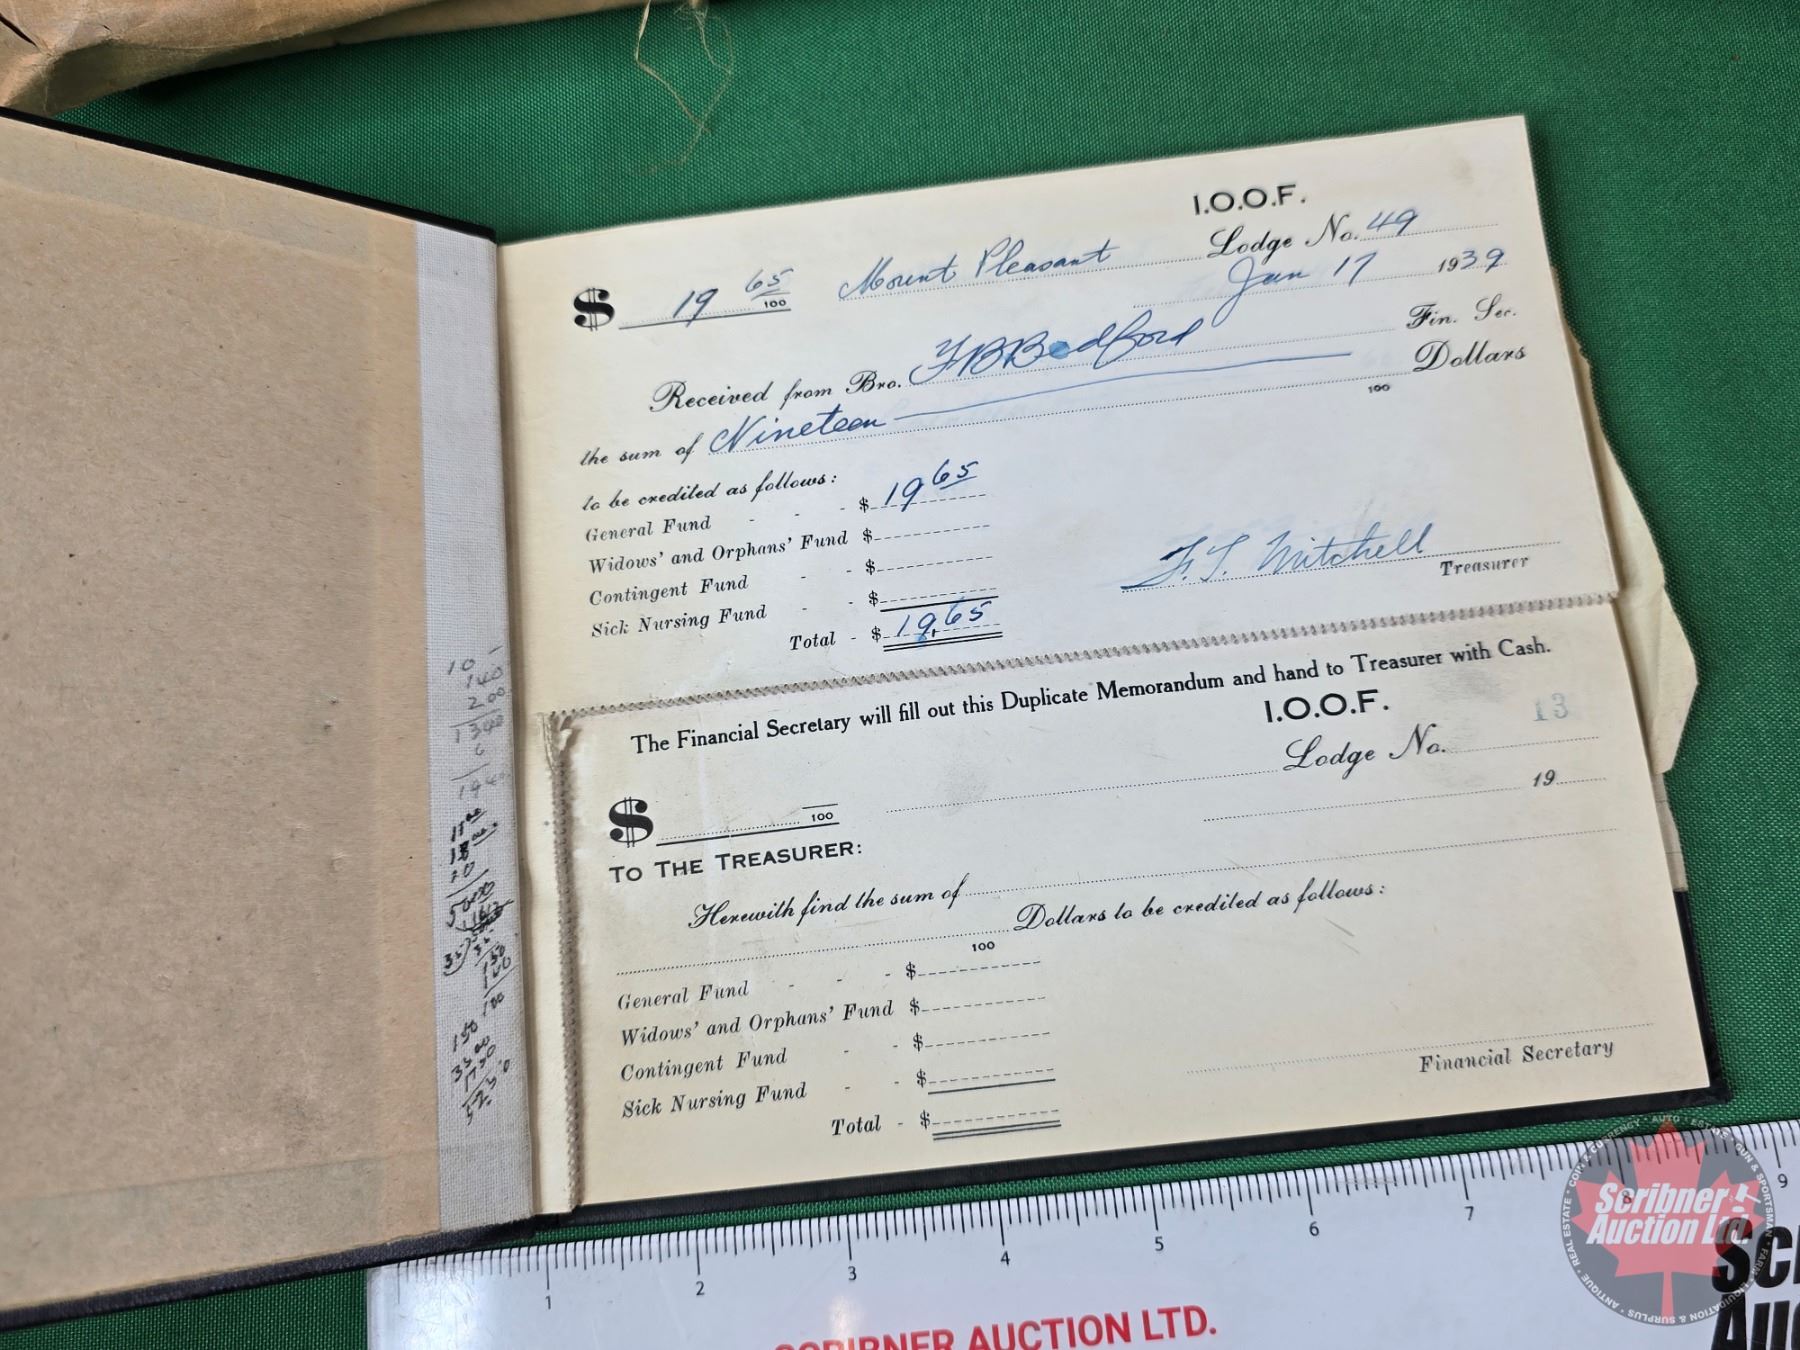 I.O.O.F.
$ 19 65/100 Mount Pleasant Lodge No. 49
Jan 17 1939
Received from Bro. F B Bedford Fin. Sec.
the sum of Nineteen 100 Dollars
to be credited as follows:
General Fund - - - $ 19 65
Widows' and Orphans' Fund $
Contingent Fund - - $
Sick Nursing Fund - - $
Total - $ 19.65
F. T. Mitchell
Treasurer
The Financial Secretary will fill out this Duplicate Memorandum and hand to Treasurer with Cash.
I.O.O.F. 13
Lodge No.
$ 100 19
TO THE TREASURER:
Herewith find the sum of
100 Dollars to be credited as follows:
General Fund - - - $
Widows' and Orphans' Fund $
Contingent Fund - - $
Sick Nursing Fund - - $
Total - $
Financial Secretary
10
140
200
1340
150
1 2 3 4 5 6 7 8 9
SCRIBNER AUCTION LTD.
Scribner
Auction Ltd.